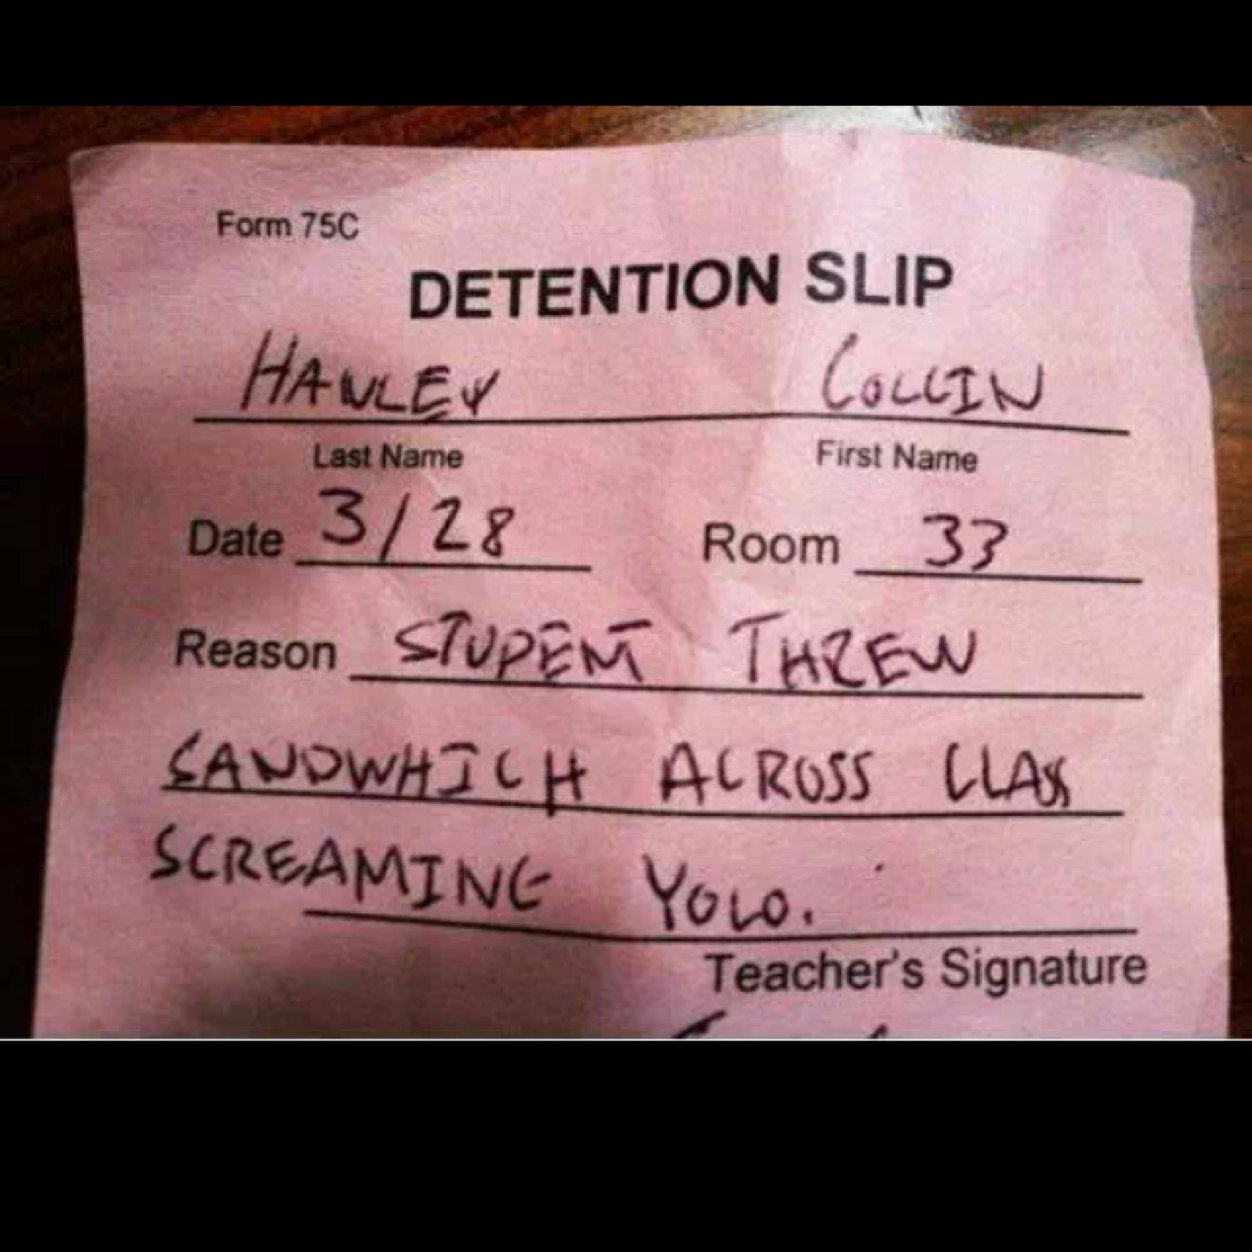 Form 75C
DETENTION SLIP
HANLEY COLLIN
Last Name First Name
Date 3/28 Room 33
Reason STUDENT THREW
SANDWHICH ACROSS CLASS
SCREAMING YOLO.
Teacher's Signature